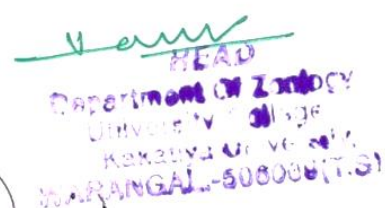 HEAD
Department of Zoology
University College
Kakatiya University,
WARANGAL-506009(T.S)